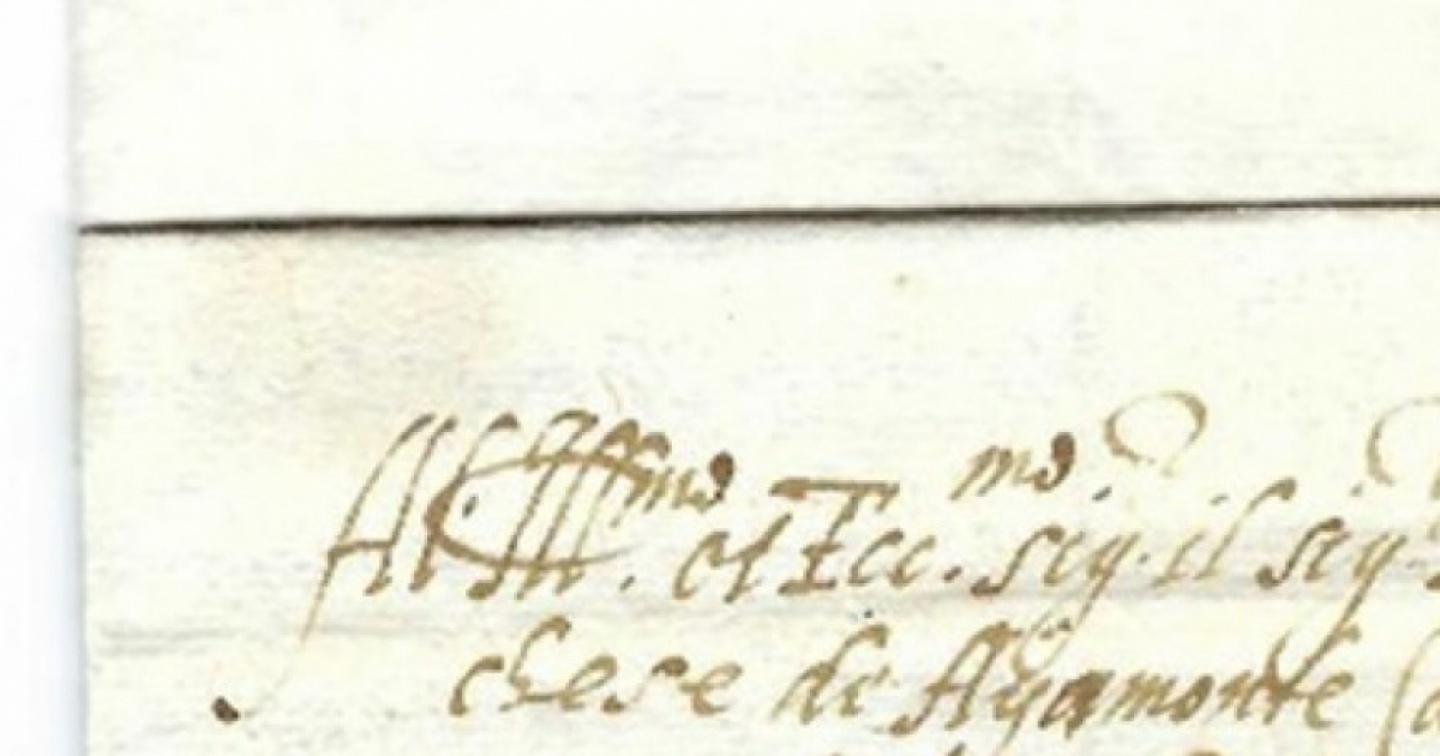 All Ill.mo et Ecc.mo sig. il sig.
chese di Ayamonte